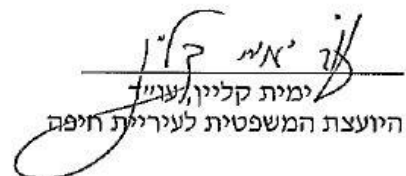 ימית קליין, עו״ד
היועצת המשפטית לעיריית חיפה